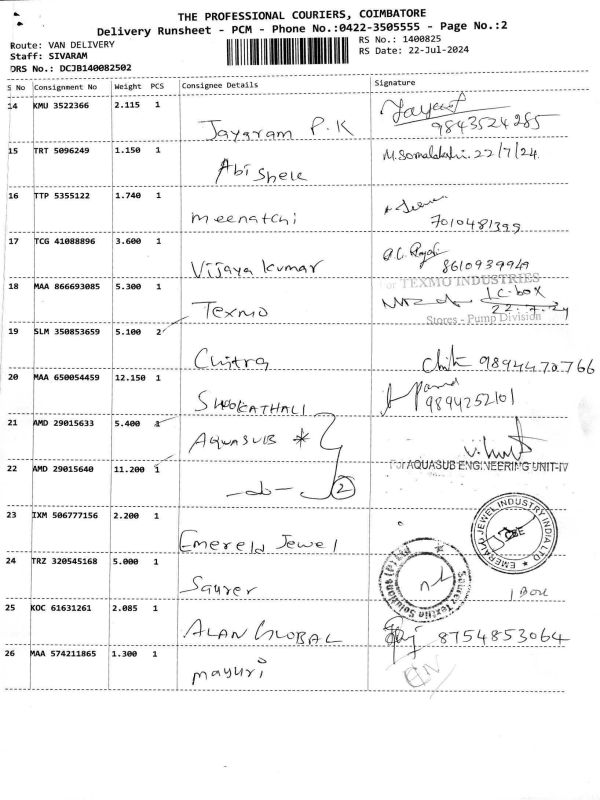 THE PROFESSIONAL COURIERS, COIMBATORE
Delivery Runsheet - PCM - Phone No.:0422-3505555 - Page No.:2
Route: VAN DELIVERY
Staff: SIVARAM
DRS No.: DCJB140082502
RS No.: 1400825
RS Date: 22-Jul-2024
S No Consignment No Weight PCS Consignee Details Signature
14 KMU 3522366 2.115 1
Jayaram P.K 9843524285
15 TRT 5096249 1.150 1
Abi Shek 22/7/24
16 TTP 5355122 1.740 1
meenatchi 7010481399
17 TCG 41088896 3.600 1
Vijaya Kumar 8610939949
18 MAA 866693085 5.300 1
Texmo
For TEXMO INDUSTRIES
1 C-box
22.7.24
Stores - Pump Division
19 SLM 350853659 5.100 2
Chitra 9894470766
20 MAA 650054459 12.150 1
SHOOKATHALI 9894252101
21 AMD 29015633 5.400 1
AQUASUB *
For AQUASUB ENGINEERING UNIT-IV
22 AMD 29015640 11.200 1
-do- 2
23 IXM 506777156 2.200 1
Emereld Jewel
EMERALD JEWEL INDUSTRY INDIA LTD
CBE
24 TRZ 320545168 5.000 1
Saurer
Saurer Textile Solutions (P) Ltd
1 Box
25 KOC 61631261 2.085 1
ALAN GLOBAL 8754853064
26 MAA 574211865 1.300 1
mayuri